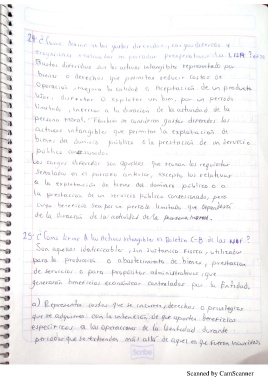 24.¿Como define a los gastos diferidos, cargos diferidos y
erogaciones realizadas en periodos preoperativos la LISR?
Gastos diferidos son los activos intangibles representados por
bienes o derechos que permitan reducir costos de
operación, mejorar la calidad o aceptación de un producto,
usar, disfrutar o explotar un bien, por un periodo
limitado, inferior a la duración de la actividad de la
persona moral. También se consideran gastos diferidos los
activos intangibles que permitan la explotación de
bienes del dominio público o la prestación de un servicio
público concesionado.
Los cargos diferidos son aquellos que reunan los requisitos
señalados en el párrafo anterior, excepto los relativos
a la explotación de bienes del dominio público o a
la prestación de un servicio público concesionado, pero
cuyo beneficio sea por un periodo ilimitado que dependerá
de la duración de la actividad de la persona moral.
25.¿Como define A los Activos intangibles el Boletin C-8 de las NIF?
Son aquellos identificables, sin sustancia física, utilizados
para la producción o abastecimiento de bienes, prestación
de servicios o para propósitos administrativos, que
generarán beneficios económicos controlados por la Entidad.
a) Representan costos que se incurren, derechos o privilegios
que se adquieren con la intención de que aporten beneficios
específicos a las operaciones de la Entidad durante
periodos que se extienden más allá de aquel en que fueron incurridos
Scribe
Scanned by CamScanner